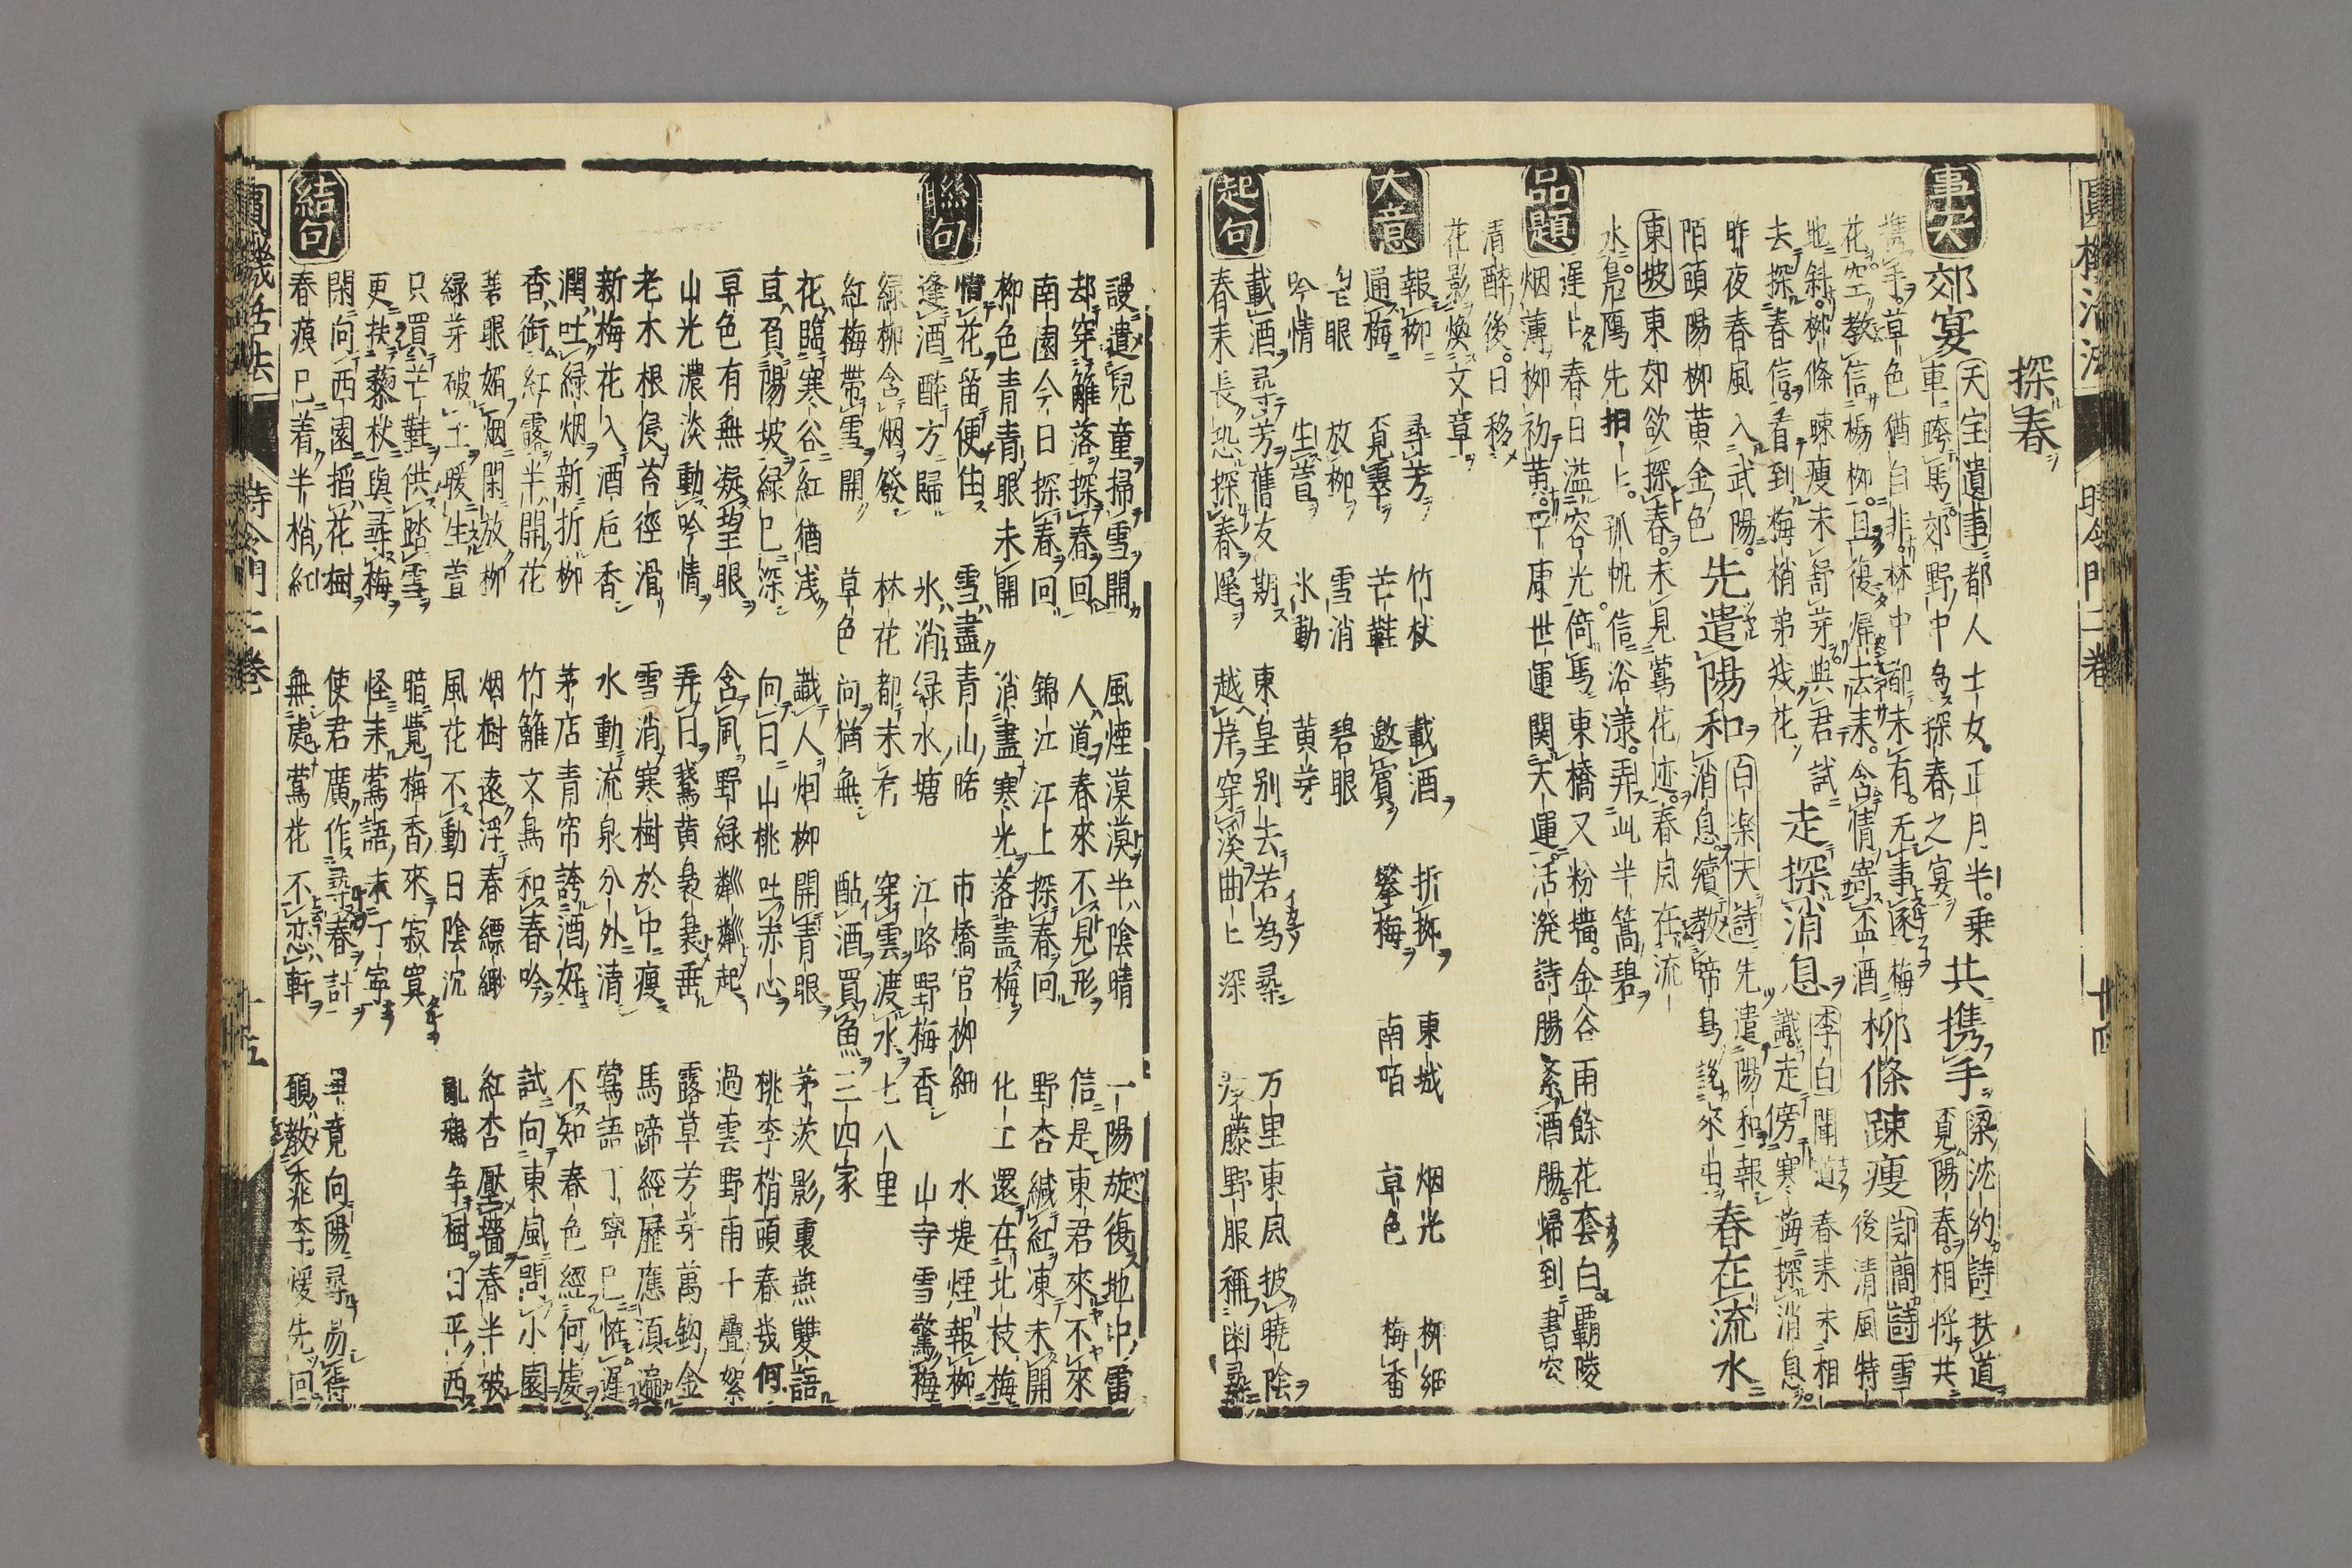 圓機活法 時令門二卷 十四
探春
事実
郊宴 天宝遺事 都人士女正月半乗
車跨馬郊野中為探春之宴 共携手 梁沈約詩 扶道覓陽春相将共
携手草色猶自非林中都未有无事逐梅
花空教信楊柳且復帰去来含情寄盃酒 柳條踈瘦 邵蘭詩 雪後清風特
地斜柳條踈瘦未舒芽與君試走
去探春信看到梅梢第幾花 走探消息 李白 聞道春未未相
識走傍寒梅探消息
昨夜春風入武陽
陌頭陽柳黄金色 先遣陽和 百楽天詩 先遣陽和報
消息續教啼鳥説来由 春在流水
東坡 東郊欲探春未見鶯花迹春風在流
水鳧鴈先拍上孤帆信浴漾弄此半篙碧
品題
遅上春日溢容光倚馬東橋又粉墻金谷雨餘花套白覇陵
烟薄柳初黄平康世運関天運活溌詩腸紊酒腸帰到書窓
清酔後日移
花影煥文章
大意
報柳 尋芳 竹杖 載酒 折柳 東城 烟光 柳細
逼梅 覓句 芒鞋 邀賓 攀梅 南陌 草色 梅香
眼 放柳 雪消 碧眼
吟情 生萱 氷動 黄芽
起句
載酒尋芳舊友期 東皇別去若為尋 万里東風披曉陰
春来長恐探春遅 越岸穿溪曲上深 藤野服稱幽尋
謾遣兒童掃雪開 風煙漠漠半陰晴 一陽旋復地中雷
却穿籬落探春回 人道春來不見形 信是東君來不來
南園今日探春回 錦江江上探春回 野杏緘紅凍未開
柳色青青眼未開 消盡寒光落盡梅 化工還在北枝梅
聯句
惜花留便住 雪盡青山路 市橋官柳細 水堤煙報柳
逢酒醉方歸 氷消緑水塘 江路野梅香 山寺雪驚梅
緑柳含烟發 林花都未有 穿雲渡水七八里
紅梅帶雪開 草色问猶無 酤酒買魚三四家
花臨寒谷紅猶浅 識人烟柳開青眼 茅茨影裏燕雙語
草負陽坡緑已深 向日山桃吐赤心 桃李梢頭春幾何
草色有無凝望眼 含風野緑粼粼起 過雲野雨十疊絮
山光濃淡動吟情 弄日鵞黄裊裊垂 露草芳芽萬鈎金
老木根侵苔徑滑 雪消寒樹於中瘦 馬蹄經歴應須遍
新梅花入酒巵香 水動流泉分外清 鶯語丁寧已恠遅
潤吐緑烟新折柳 茅店青帘誇酒好 不知春色經何處
香銜紅露半開花 竹籬文鳥和春吟 試向東風問小園
著眼媚烟閑放柳 烟樹遠浮春縹緲 紅杏壓墻春半破
緑芽破土暖生萱 風花不動日陰沈 亂鴉争樹日平西
結句
只買芒鞋供踏雪 暗覺梅香來寂寞
更扶藜杖與尋梅 怪来鶯語未丁寧
閑向西園揩花樹 使君廣作尋春計 畢竟向陽尋易得
春痕已着半梢紅 無處鶯花不恋軒 願教乖李煖先回
圓機活法 時令門二卷 十五